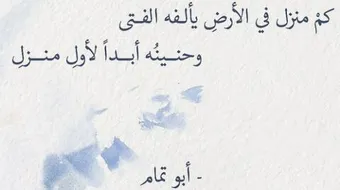 كمْ منزل في الأرضِ يألـفه الفـتى
وحنـينُه أبــداً لأولِ منــزلِ
- أبو تمام